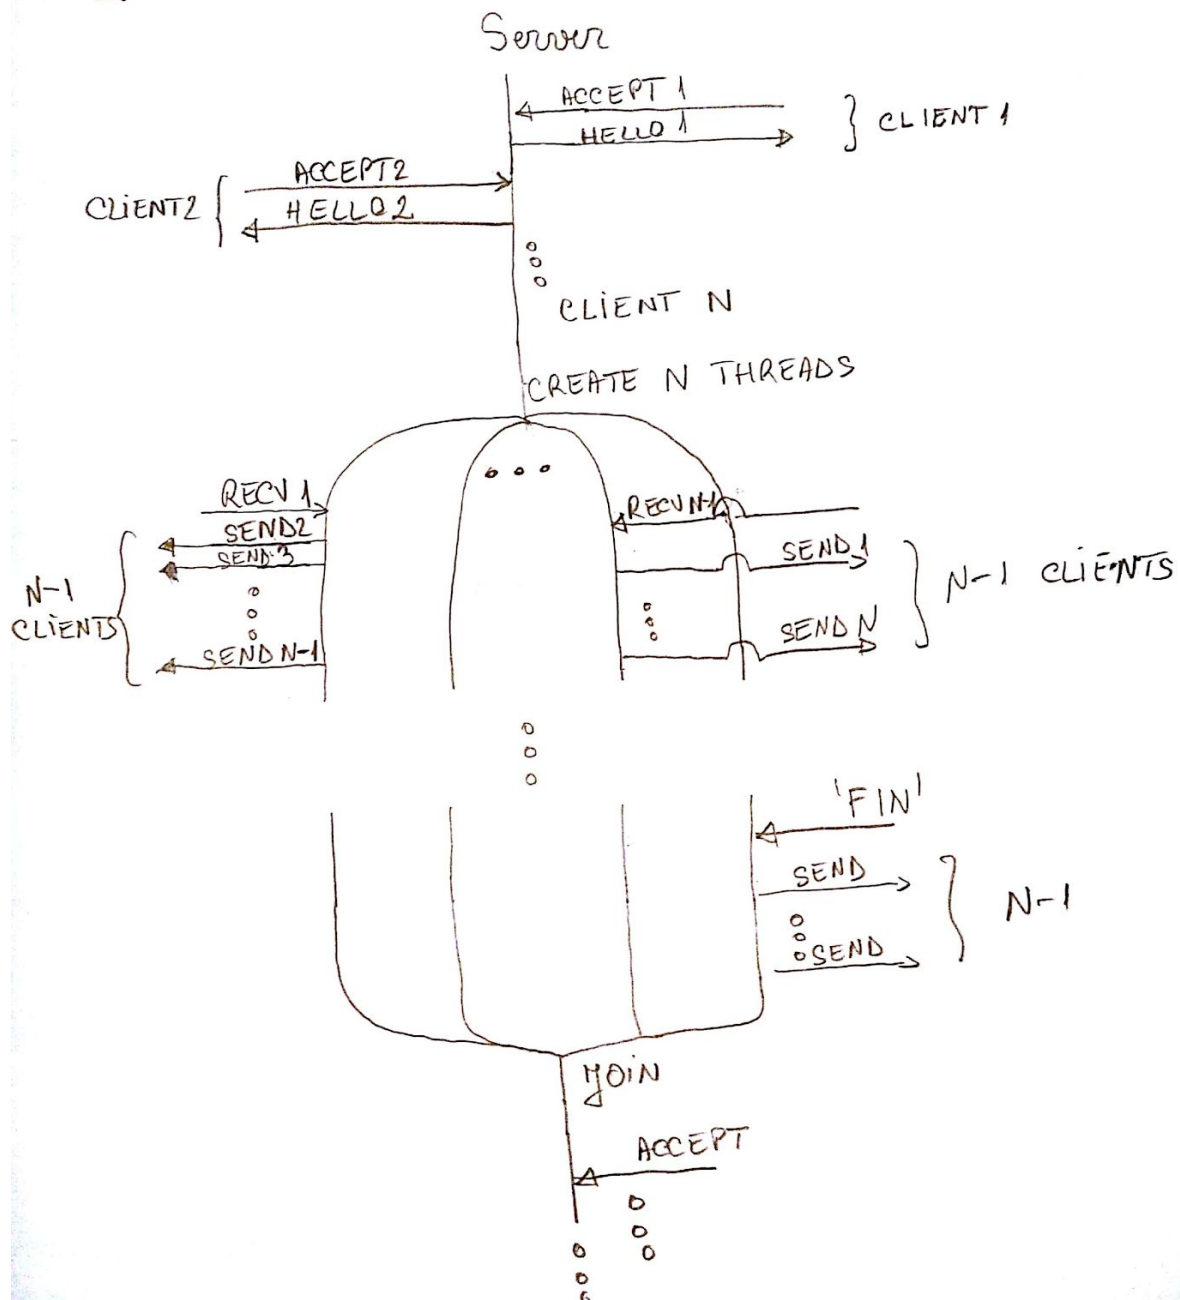 Server
ACCEPT 1
HELLO 1
CLIENT 1
ACCEPT2
HELLO 2
CLIENT2
CLIENT N
CREATE N THREADS
RECV 1
SEND2
SEND 3
SEND N-1
N-1
CLIENTS
RECV N-1
SEND 1
SEND N
N-1 CLIENTS
'FIN'
SEND
SEND
N-1
JOIN
ACCEPT